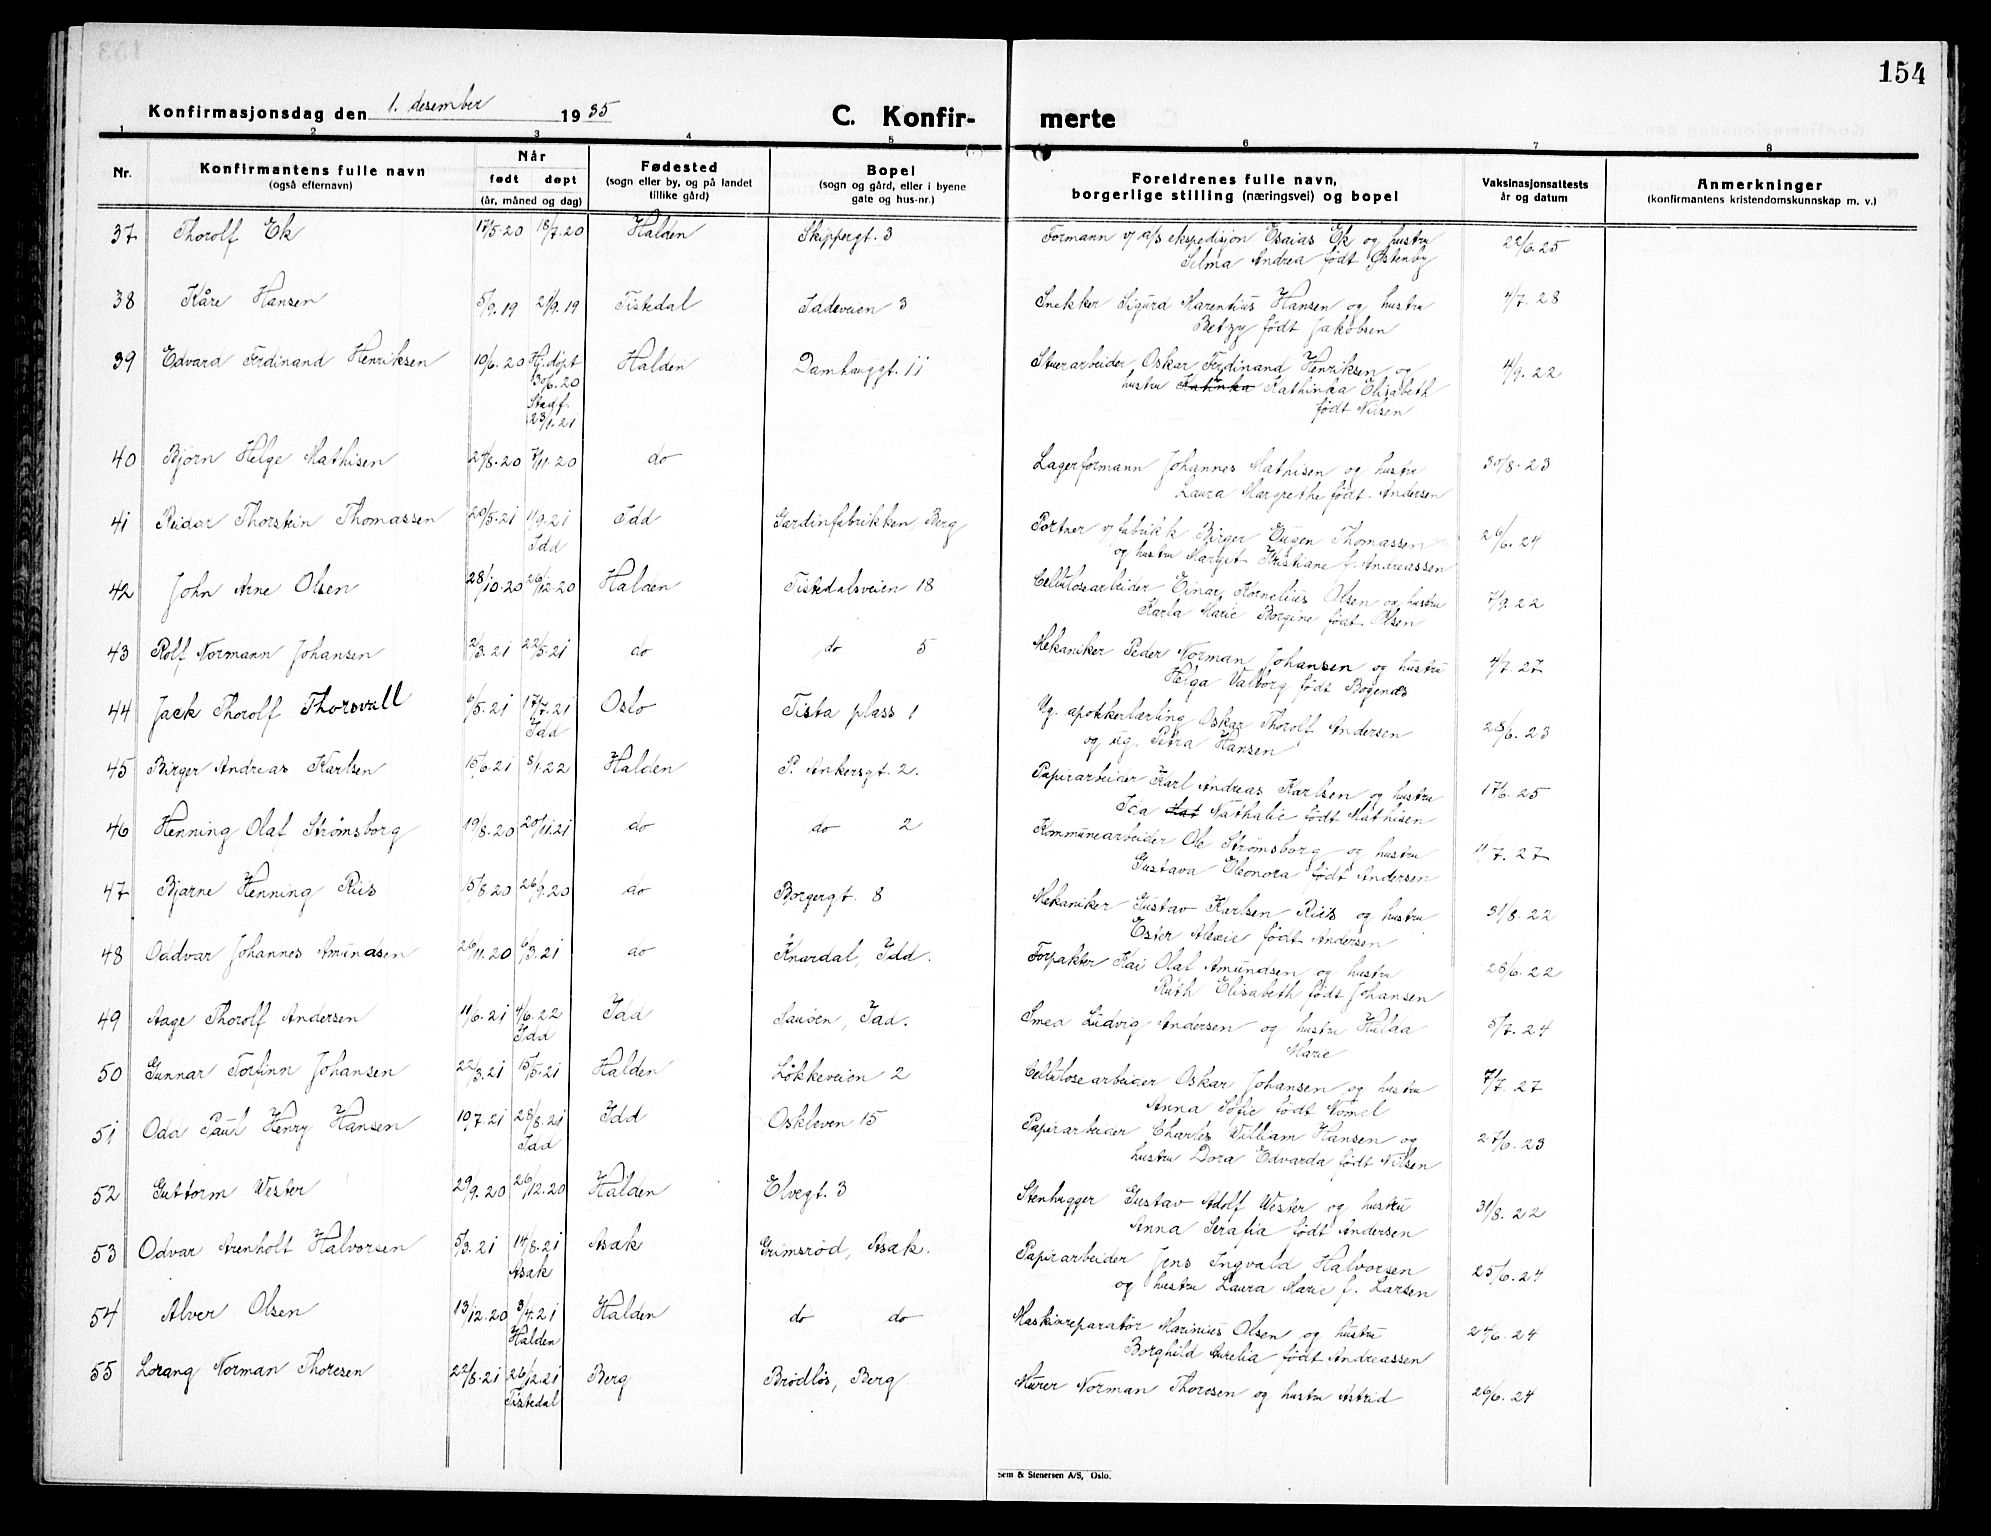 154
Konfirmasjonsdag den 1. desember 1935
C. Konfirmerte
1 2 3 4 5 6 7 8
Nr.
Konfirmantens fulle navn
(også efternavn)
Når
født døpt
(år, måned og dag)
Fødested
(sogn eller by, og på landet
tillike gård)
Bopel
(sogn og gård, eller i byene
gate og hus-nr.)
Foreldrenes fulle navn,
borgerlige stilling (næringsvei) og bopel
Vaksinasjonsattests
år og datum
Anmerkninger
(konfirmantens kristendomskunnskap m. v.)
37 Thorolf Ek 17/5.20 18/7.20 Halden Skippergt. 3 Formann v/ a/s ekspedisjon Esaias Ek og hustru 22/6.25
Selma Andrea født Østenby
38 Kåre Hansen 5/9.19 21/9.19 Tistedal Ladeveien 3 Snekker Sigurd Marentius Hansen og hustru 4/7.28
Betzy født Jakobsen
39 Edvard Ferdinand Henriksen 10/6.20 Hj.døpt Halden Damhauggt. 11 Stuerarbeider Oskar Ferdinand Henriksen og 4/9.22
30/6.20 hustru Katinka Kathinka Elisabeth
Stadf. født Nilsen
23/1.21
40 Bjørn Helge Mathisen 24/8.20 7/11.20 do Lagerformann Johannes Mathisen og hustru 30/8.23
Laura Margrethe født Andersen
41 Reidar Thorstein Thomassen 20/5.21 11/9.21 Idd Gardinfabrikken, Berg Portner v/ fabrikk Birger Eugen Thomassen 26/6.24
Idd og hustru Margit Kristiane f. Andreassen
42 John Arne Olsen 28/10.20 26/12.20 Halden Tistedalsveien 18 Cellulosearbeider Einar Kornelius Olsen og hustru 7/9.22
Karla Marie Borgine født Olsen
43 Rolf Normann Johansen 2/3.21 22/5.21 do do 5 Mekaniker Peder Norman Johansen og hustru 4/7.27
Helga Valborg født Bogenæs
44 Jack Thorolf Thorsvall 6/5.21 17/7.21 Oslo Tista plass 1 Ug. apotekerlærling Oskar Thorolf Andersen 28/6.23
Idd og ug. Petra Hansen
45 Birger Andreas Karlsen 15/6.21 8/1.22 Halden P. Ankersgt. 2. Papirarbeider Karl Andreas Karlsen og hustru 17/6.25
Ida Mat Nathalie født Mathisen
46 Henning Olaf Strømsborg 19/8.20 20/11.21 do do 2 Kommunearbeider Ole Strømsborg og hustru 11/7.27
Gustava Eleonora født Andersen
47 Bjarne Henning Riis 15/8.20 26/9.20 do Borgergt. 8 Mekaniker Gustav Karlsen Riis og hustru 31/8.22
Ester Alexie født Andersen
48 Oddvar Johannes Amundsen 26/11.20 6/3.21 do Knardal, Idd. Forpakter Kai Olaf Amundsen og hustru 28/6.22
Ruth Elisabeth født Johansen
49 Aage Thorolf Andersen 11/6.21 4/6.22 Idd Sauøen, Idd. Smed Ludvig Andersen og hustru Hulda 5/7.24
Idd Marie
50 Gunnar Torfinn Johansen 22/3.21 15/5.21 Halden Løkkeveien 2 Cellulosearbeider Oskar Johansen og hustru 7/7.27
Anna Sofie født Nomel
51 Odd Paul Henry Hansen 19/7.21 28/8.21 Idd Oskleven 15 Papirarbeider Charles William Hansen og 27/6.23
Idd hustru Dora Edvarda født Nilsen
52 Guttorm Wester 29/9.20 26/12.20 Halden Elvegt. 3 Stenhugger Gustav Adolf Wester og hustru 31/8.22
Anna Serafia født Andersen
53 Odvar Arenholt Halvorsen 5/3.21 14/8.21 Asak Grimsrød, Asak. Papirarbeider Jens Ingvald Halvorsen 25/6.24
Asak og hustru Laura Marie f. Larsen
54 Alver Olsen 13/12.20 3/4.21 Halden do do Maskinreparatør Marinius Olsen og hustru 24/6.24
Halden Borghild Aurelia født Andreassen
55 Lorang Norman Thoresen 22/8.21 26/12.21 Berg Brødløs, Berg Murer Norman Thoresen og hustru Astrid 26/6.24
Tistedal
Sem & Stenersen A/S, Oslo.